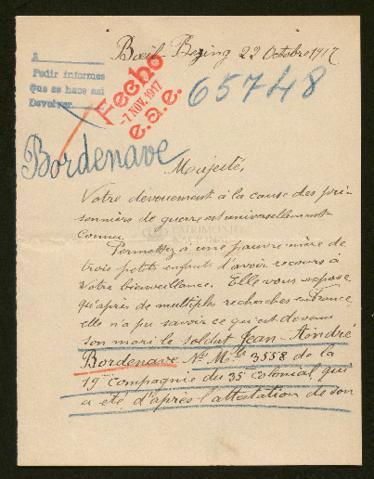 A
Pedir informes
Que se hace así
Devolver
Fecho
-7 NOV. 1917
e.a.e.
Bœil-Bezing 22 Octobre 1917
65748
Bordenave
Majesté,
Votre dévouement à la cause des pri-
sonniers de guerre est universellement
connu.
Permettez à une pauvre mère de
trois petits enfant d'avoir recours à
votre bienveillance. Elle vous expose
qu'après de multiples recherches en France,
elle n'a pu savoir ce qu'est devenu
son mari le soldat Jean-André
Bordenave No Mle 3558 de la
19e compagnie du 35e colonial qui
a été d'après l'attestation de son